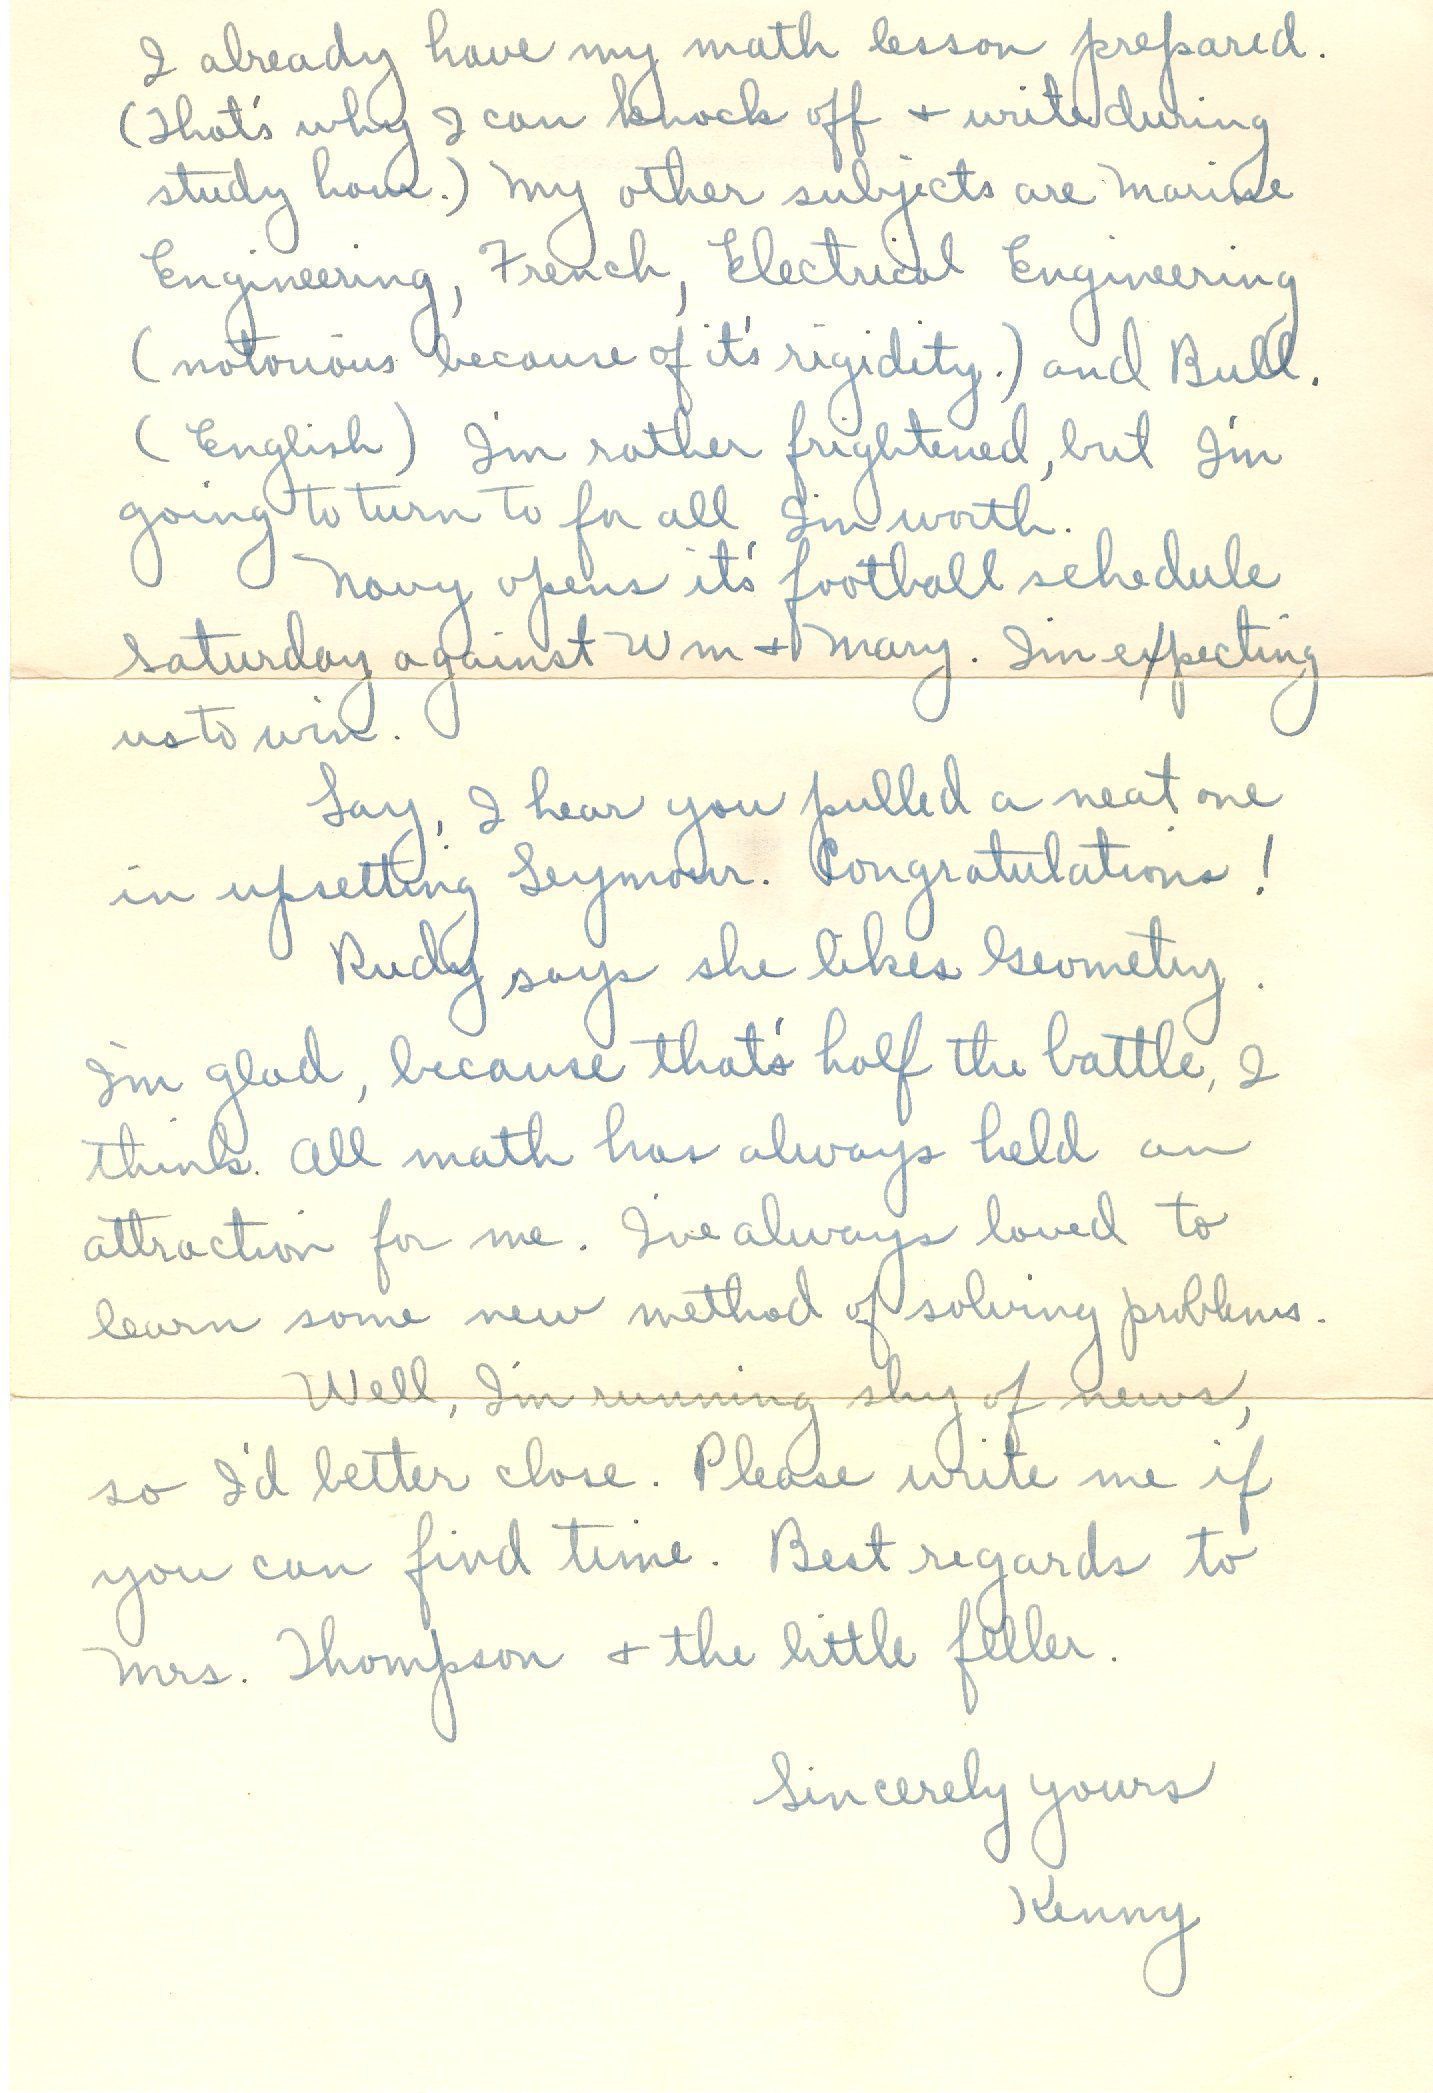 I already have my math lesson prepared.
(That's why I can knock off + write during
study hour.) My other subjects are Marine
Engineering, French, Electrical Engineering
(notorious because of it's rigidity.) and Bull.
(English) I'm rather frightened, but I'm
going to turn to for all I'm worth.
Navy opens it's football schedule
Saturday against Wm + Mary. I'm expecting
us to win.
Say, I hear you pulled a neat one
in upsetting Seymour. Congratulations!
Rudy says she likes Geometry.
I'm glad, because that's half the battle, I
think. All math has always held an
attraction for me. I've always loved to
learn some new method of solving problems.
Well, I'm running shy of news,
so I'd better close. Please write me if
you can find time. Best regards to
Mrs. Thompson + the little feller.
Sincerely yours
Kenny